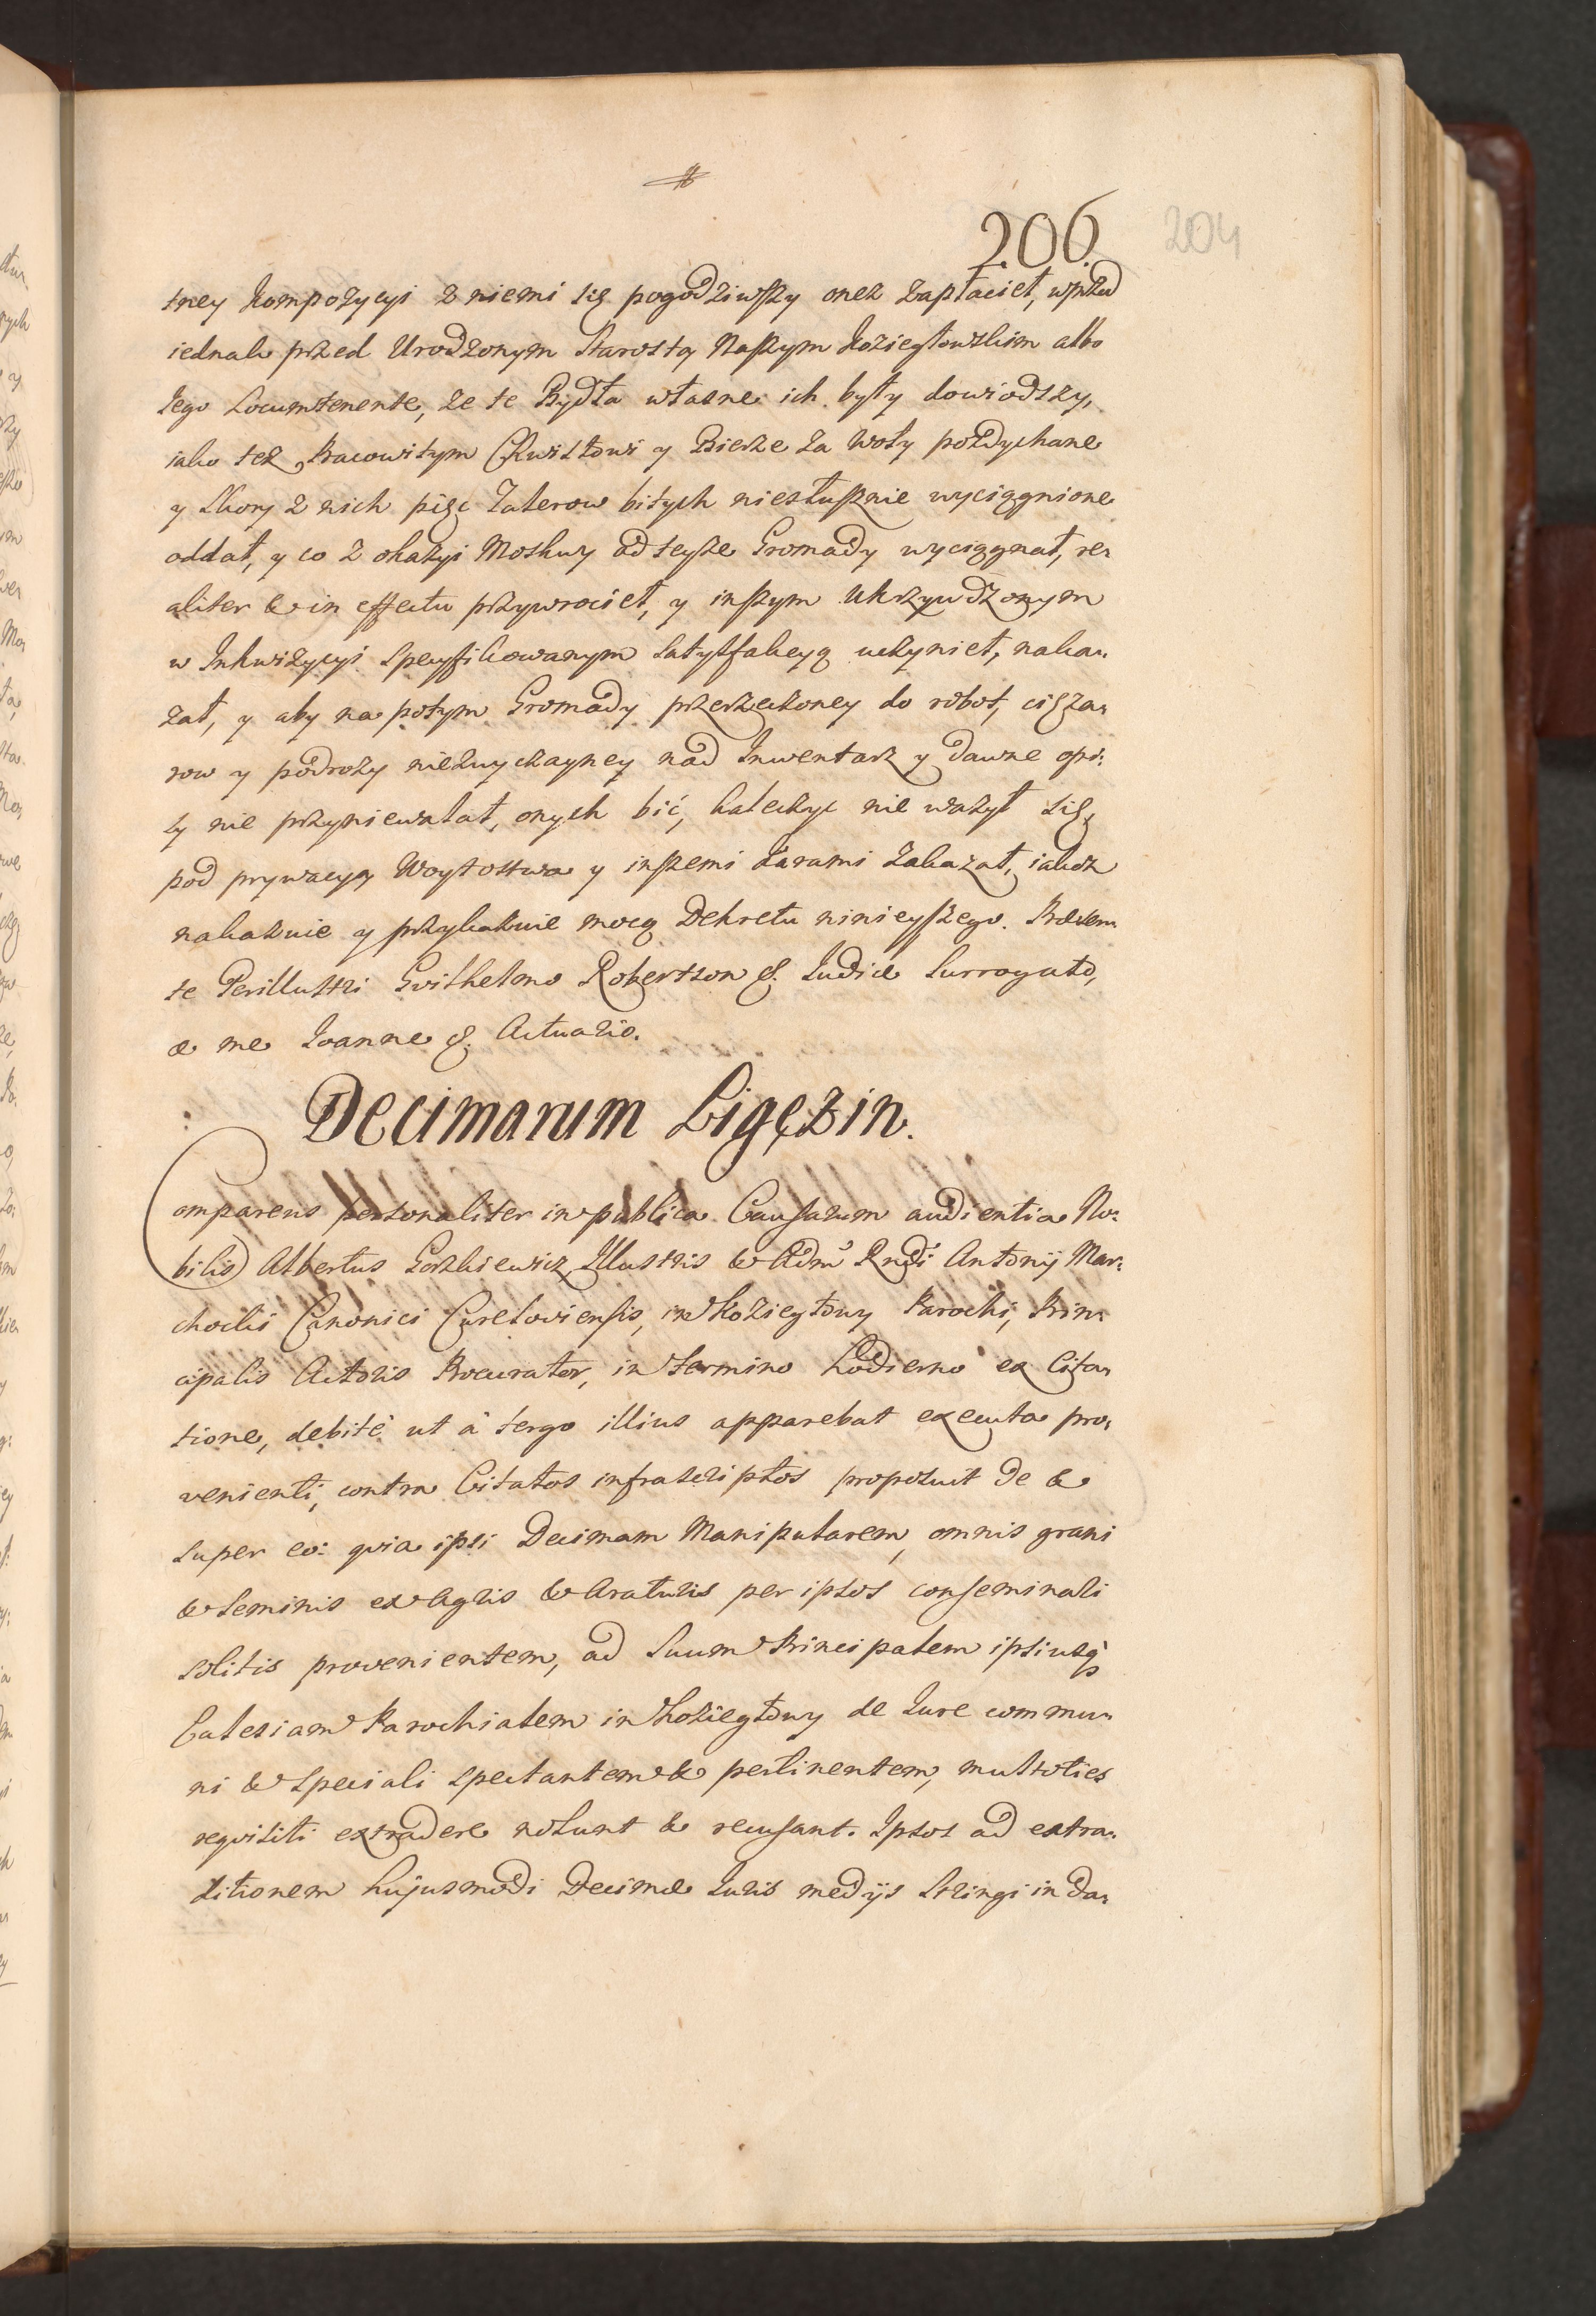 206.
204
tney kompozycyi z niemi się pogodziwszy onez zapłacieł, wprzod
iednak przed Urodzonym Starostą Naszym Koziegłowskim albo
Jego Locumtenente, ze te Bydła własne ich były dowiodszy,
iako tez Pracowitym Chwistowi y Bierze za woły pozdychane
y skory z nich pięc Talerow bitych niesłusznie wyciągnione
oddał, y co z okazyi Moskwy od teyze Gromady wyciągnał, re,
aliter & in effectu przywrocieł, y inszym ukrzywdzonym
w Inkwizycyi specyfikowanym satysfakcyą uczynieł, naka,
zał, y aby na potym Gromady przerzeczoney do robot, cięza,
row y podrozy niezwyczayney nad Inwentarz y dawne opi:
sy nie przyniewalał, onych bić, kaleczyc nie wazył się,
pod prywacyą Woytostwa y inszemi karami zakazał, iakoz
nakazuie y przykazuie mocą Dekretu ninieyszego. Præsen,
te Perillustri Gvilhelmo Robertson &. Judice Surrogato,
æ me Joanne &. Actuario.
Decimarum Ligęzin.
Comparens personaliter in publica Causarum audientia No:
bilis Albertus Gorzkiewicz, Illustris & Adm̃ Rndi Antonij Mar:
chocki Canonici Cureloviensis, in Koziegłowy Parochi, Prin,
cipalis Actoris Procurator, in termino hodierno ex Cita,
tione, debitè ut à tergo illius apparebat executa pro,
venienti, contra Citatos infrascriptos proposuit de &
super eo: qvia ipsi Decimam Manipularem, omnis grani
& seminis ex Agris & Araturis per ipsos conseminali
solitis provenientem, ad suum Principalem ipsiusq́
Eclesiam Parochialem in Koziegłowy de Jure commu,
ni & speciali spectantem & pertinentem, multoties
reqvisiti extradere nolunt & recusant. Ipsos ad extra,
ditionem hujusmodi Decimæ Juris medijs stringi in da,